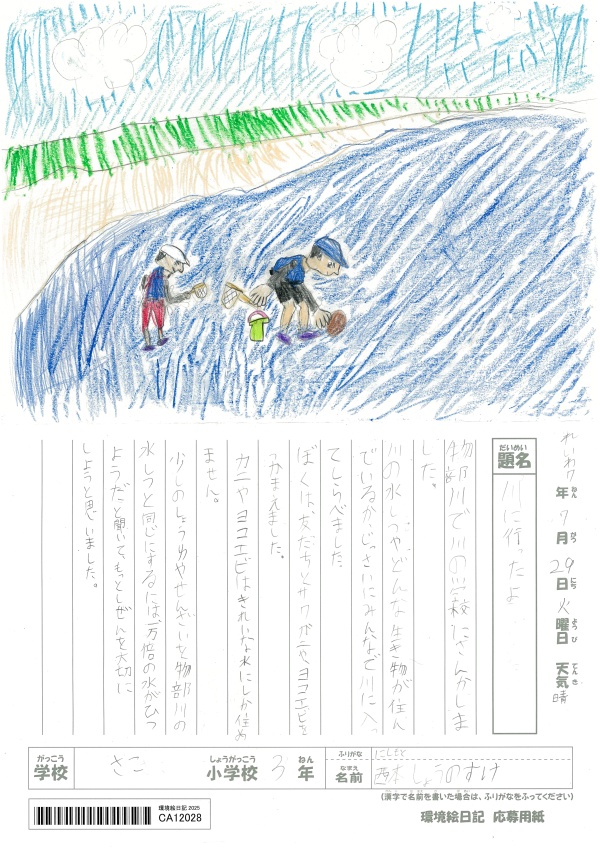 れいわ7年ねん7月がつ29日にち火曜日ようび天気てんき晴
題名だいめい
川に行ったよ
物部川で川の学校にさんかしま
した。
川の水しつや、どんな生き物が住ん
でいるか、じっさいにみんなで川に入っ
てしらべました。
ぼくは、友だちとサワガニやヨコエビを
つかまえました。
カニやヨコエビはきれいな水にしか住め
ません。
少しのしょうゆやせんざいを物部川の
水しつと同じにするには一万倍の水がひつ
ようだと聞いて、もっとしぜんを大切に
しようと思いました。
学校がっこう さこ 小学校しょうがっこう 3年ねん
ふりがな にしもと
名前なまえ 西本しょうのすけ
(漢字で名前を書いた場合は、ふりがなをふってください)
環境絵日記 2025
CA12028
環境絵日記 応募用紙